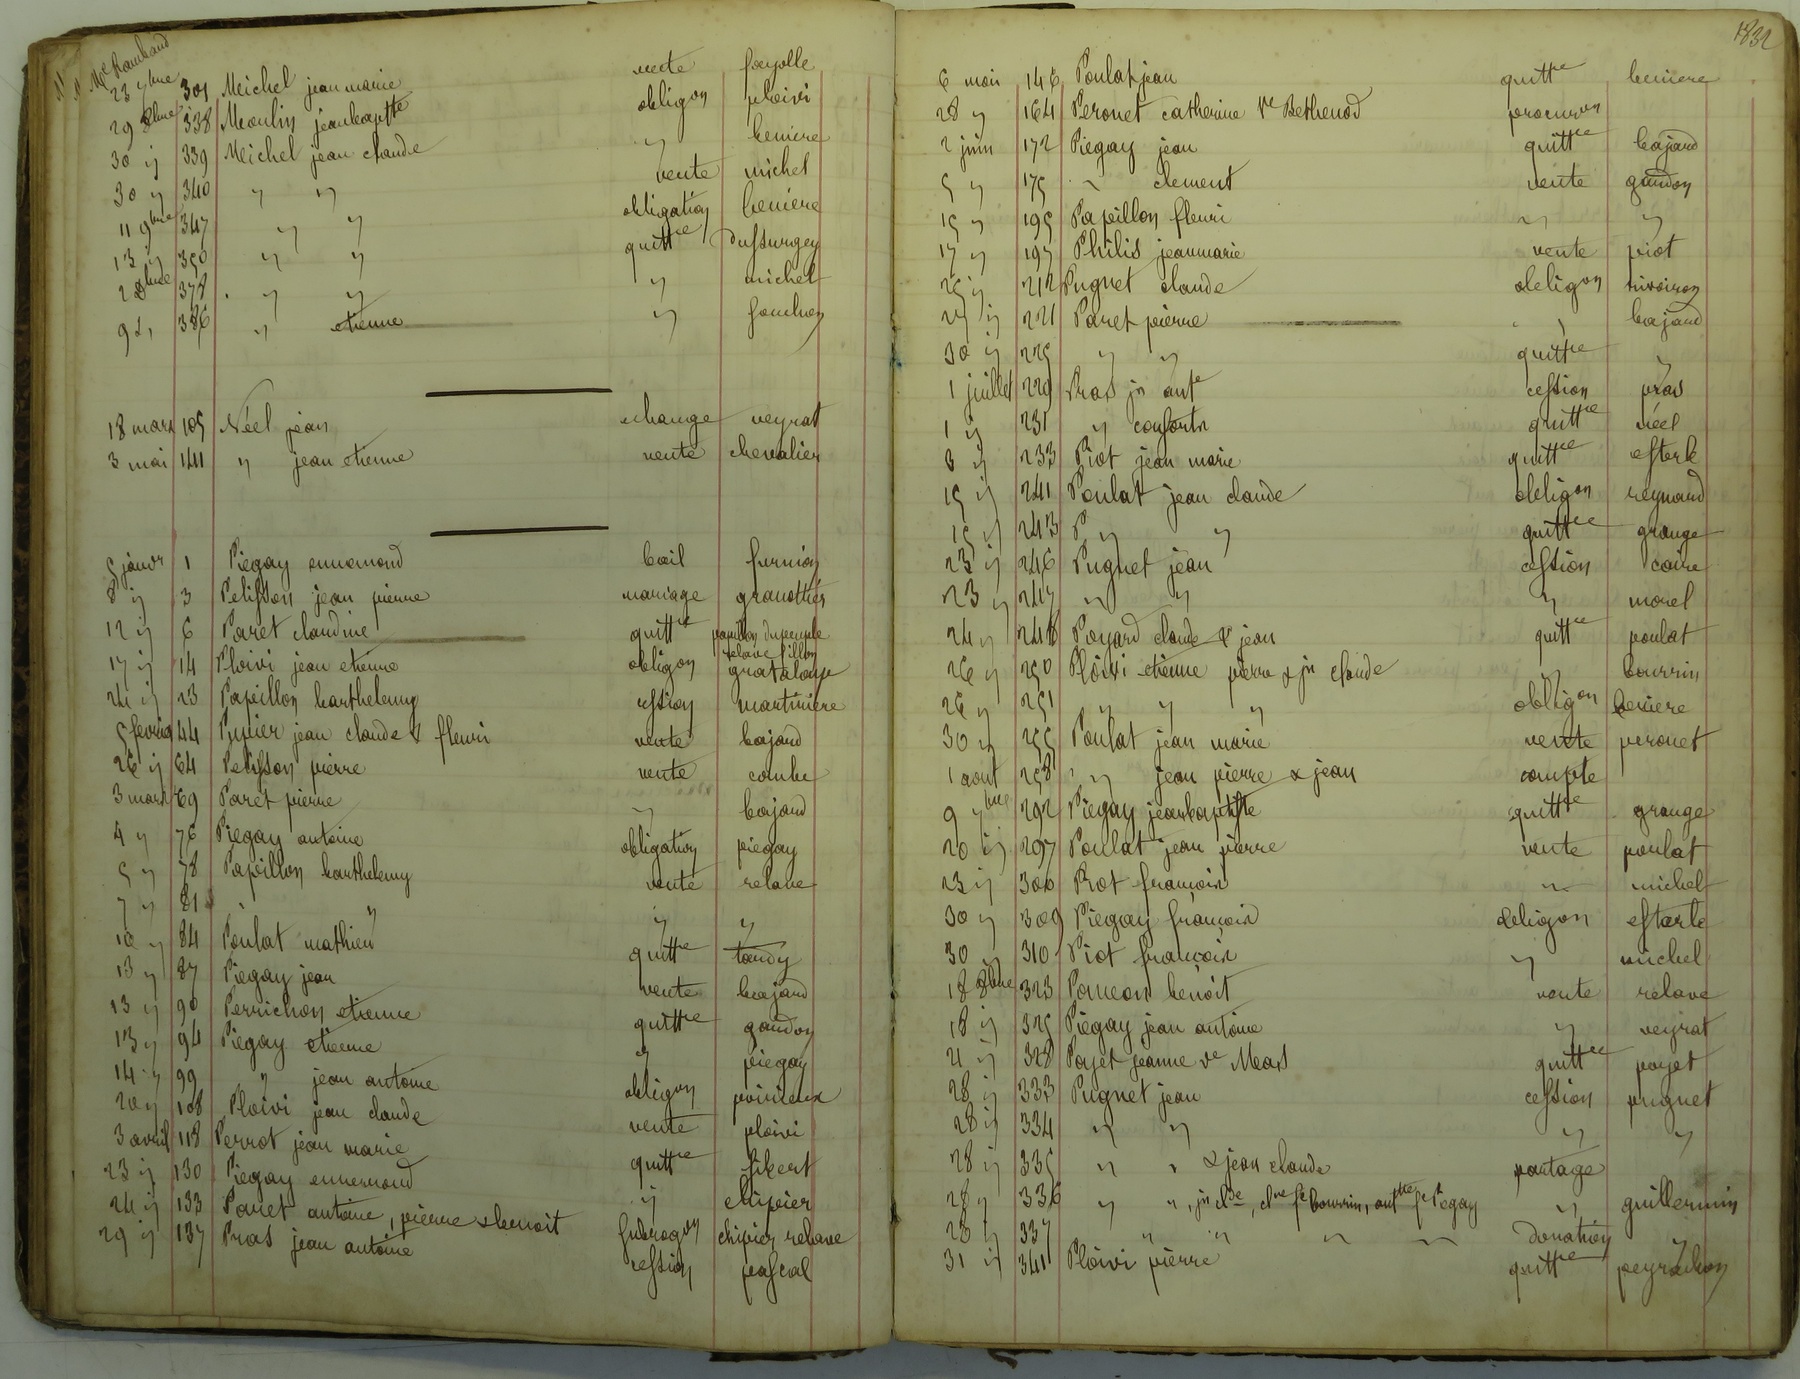 Me Rambaud
23 7bre 301 Meichel jean marie vente fayolle
29 8bre 338 Moulin jean bapte obligon ploivi
30 ij 339 Michel jean claude " beniere
30 ij 340 " " vente michel
11 9bre 347 " " obligation beniere
13 ij 350 " " quittce dussurgey
2 Xbre 378 " " " michel
9 d, 386 " etienne "
18 mars 105 Néel jean echange veyrat
3 mai 141 " jean etienne vente chevalier
5 janvr 1 Piegay ennemond bail furnion
8 ij 3 Pelisson jean pierre mariage granottier
12 ij 6 Paret claudine quittce papillon
relave fillon
17 ij 14 Ploivi jean etienne obligon grataloup
24 ij 23 Papillon barthelemy cession martiniere
5 fevrier 44 jean claude & fleuri vente bajard
26 ij 64 Pelisson pierre vente combe
3 mars 69 Paret pierre " bajard
4 ij 76 Piegay antoine obligation piegay
5 ij 78 Papillon barthelemy vente relave
7 ij 81 " " " "
10 ij 84 Poulat mathieu quittce tardy
13 ij 87 Piegay jean vente bajard
13 ij 90 Perrichon etienne quittce gandon
13 ij 94 Piegay etienne " piegay
14 ij 99 " jean antoine obligon poirieux
20 ij 108 Ploivi jean claude vente ploivi
3 avril 118 Perrot jean marie quittce
23 ij 130 Piegay ennemond " chipier
24 ij 133 Paret antoine, pierre & benoit subrogon chipier relave
29 ij 137 Pras jean antoine cession pascal
1832
6 mai 146 Poulat jean quittce beniere
28 ij 164 Peronet catherine Ve Bethenod procuron
2 juin 172 Piegay jean quittce bajard
5 ij 175 " clement vente gandon
15 ij 195 Papillon fleuri " "
17 ij 197 Philis jeanmarie vente piot
25 ij 212 Pugnet claude obligon
27 ij 221 Paret pierre " bajard
30 ij 225 " " quittce "
1 juillet 229 Pras jn ante cession pras
1 ij 231 " consorts quittce néel
8 ij 233 Piot jean marie quittce esterle
15 ij 241 Poulat jean claude obligon reynaud
15 ij 243 P " " quittce grange
23 ij 246 Pugnet jean cession coire
23 ij 247 " " " morel
24 ij 248 Poyard claude & jean quittce poulat
26 ij 250 Ploivi etienne pierre & jn claude " bourrin
26 ij 251 " " " obligon beniere
30 ij 255 Poulat jean marie vente peronet
1 aout 258 " jean pierre & jean compte
9 7bre 292 Piegay jean baptiste quittce grange
20 ij 297 Poulat jean pierre vente poulat
23 ij 300 Piot francois " michel
30 ij 309 Piegay françois obligon esterle
30 310 Piot françois " michel
18 8bre 323 Ponceon benoit vente relave
18 ij 325 Piegay jean antoine " veyrat
21 ij 328 Poyet jeanne ve Meas quittce poyet
28 ij 333 Pugnet jean cession pugnet
28 ij 334 " " " "
28 ij 335 " " & jean claude partage
28 ij 336 " ", jn cde, cne fe bourrin, antte fe Piegay " guillermin
28 ij 337 " " " " donation "
31 ij 341 Ploivi pierre quittce peyrachon